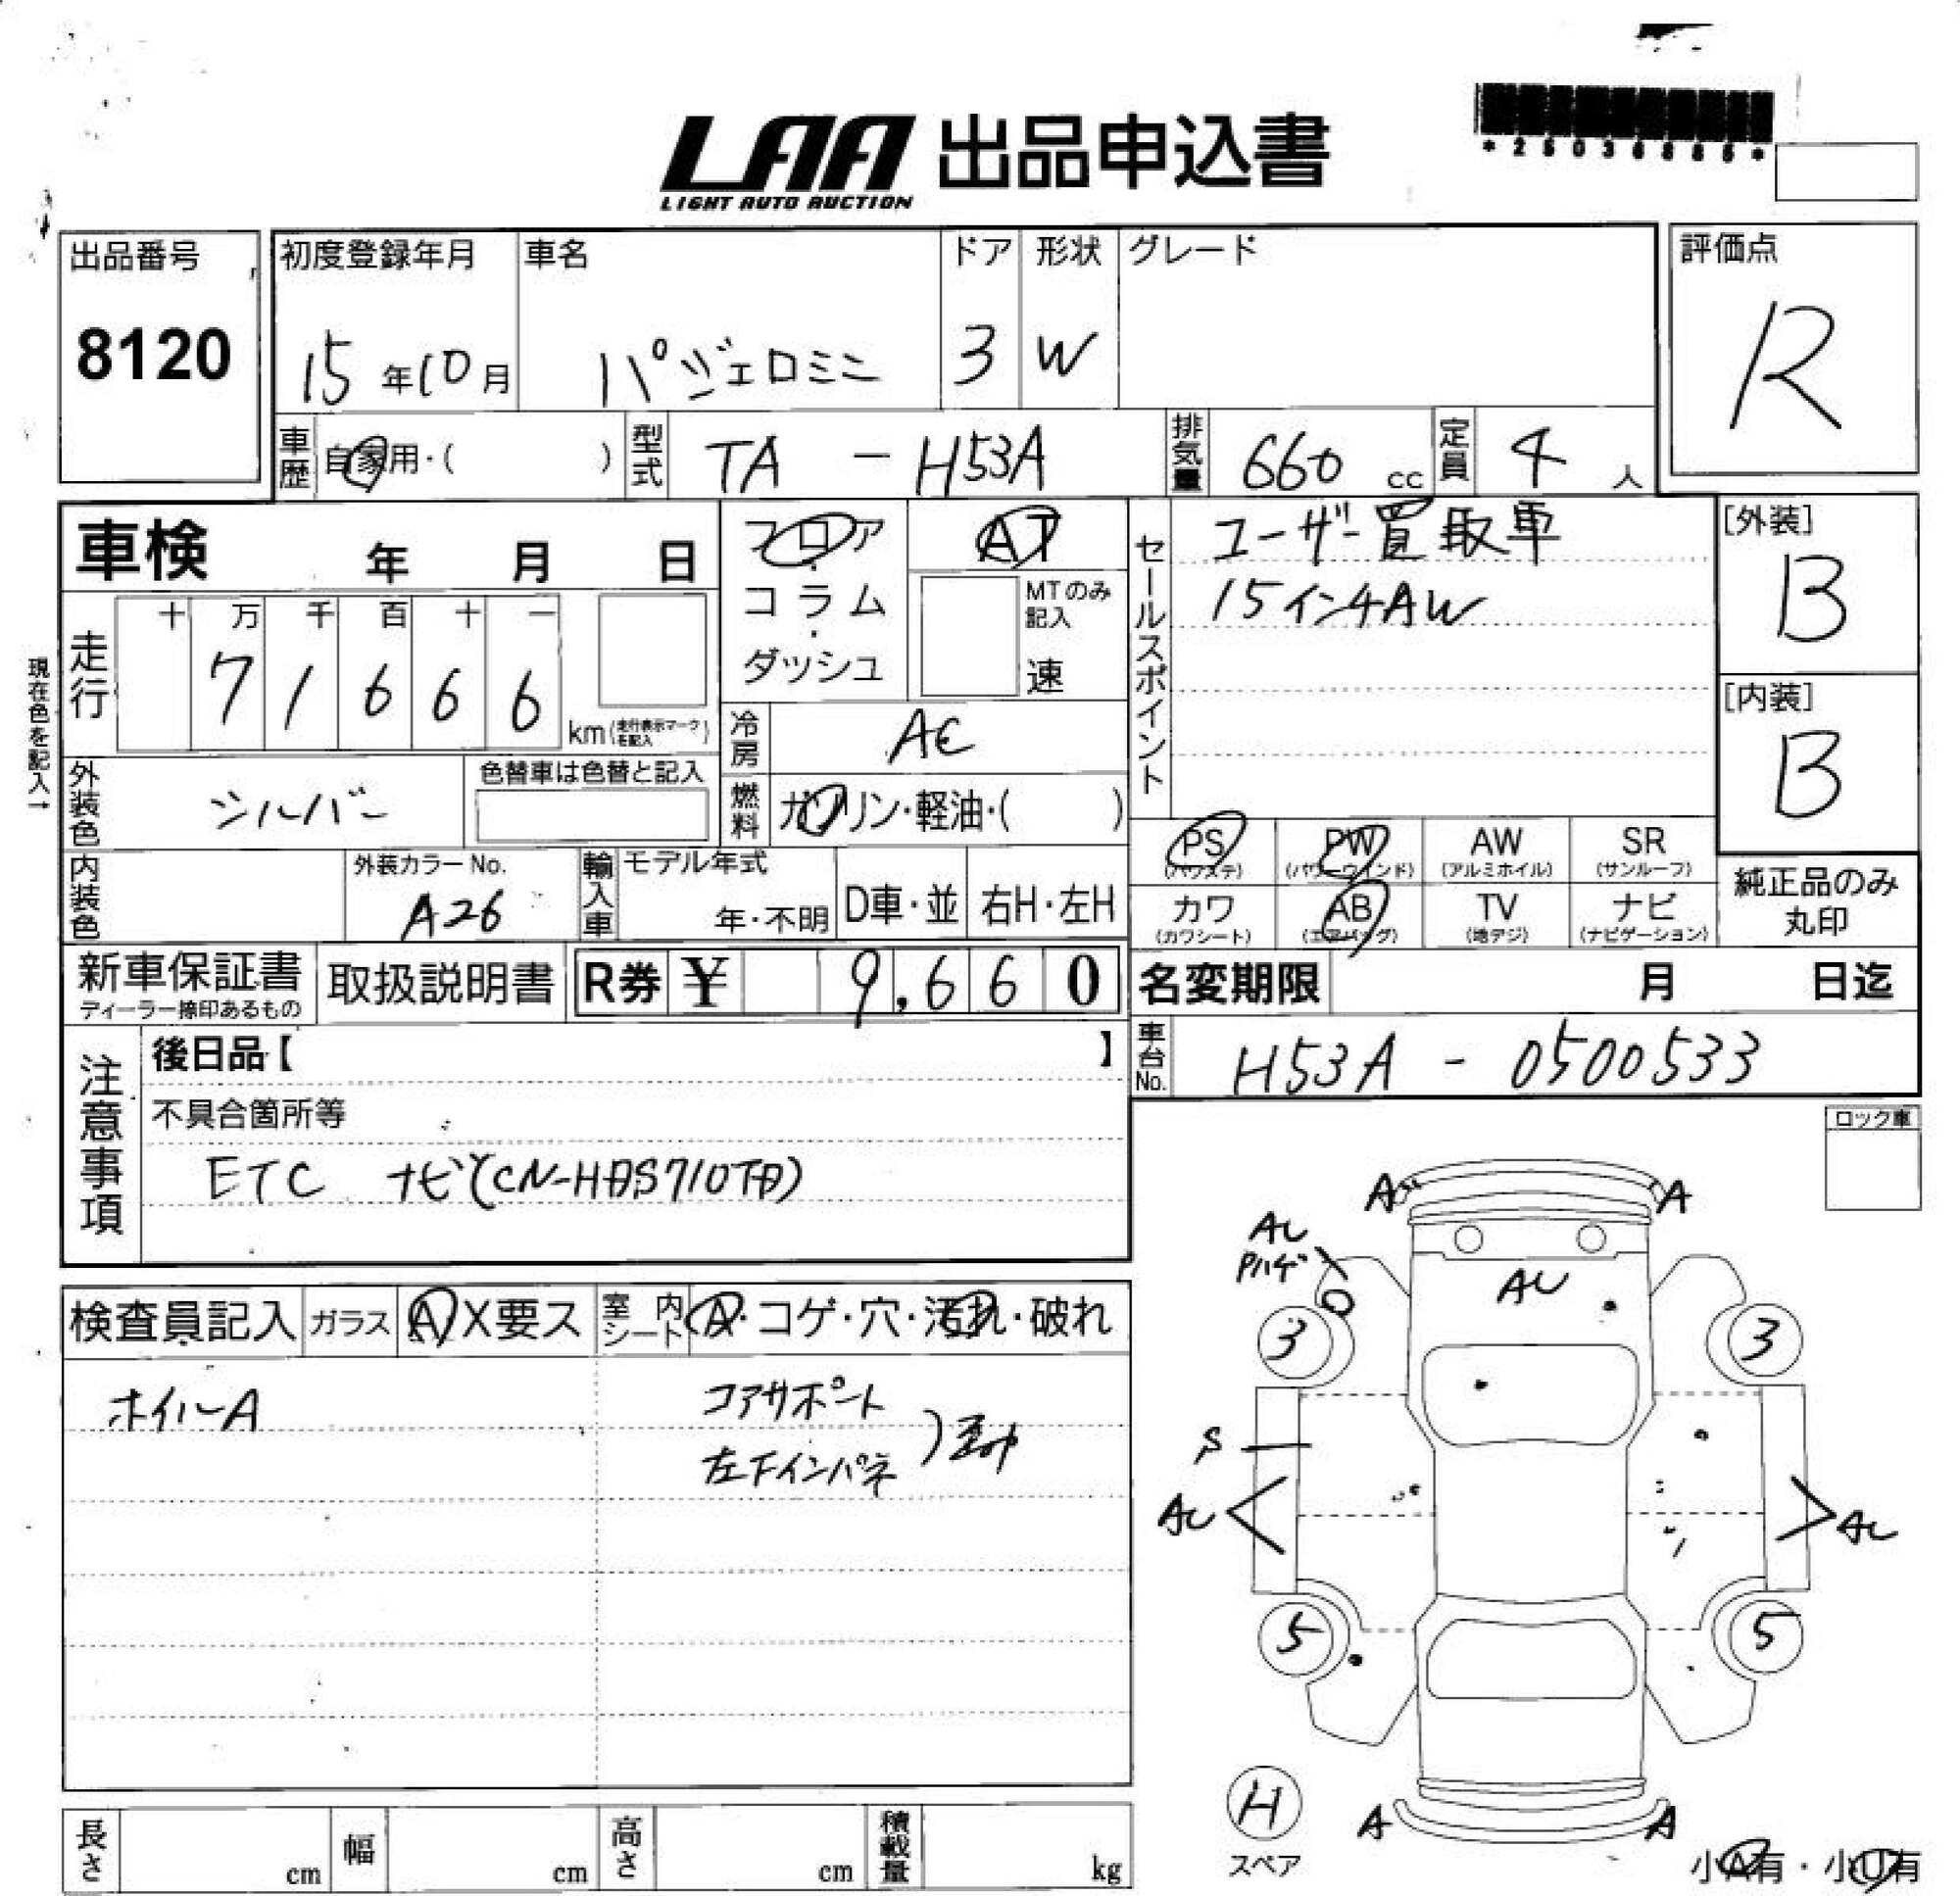 LAA 出品申込書
LIGHT AUTO AUCTION
出品番号
8120
初度登録年月
15年10月
車名
パジェロミニ
ドア
3
形状
W
グレード
評価点
R
車歴 自家用・( )
型式 TA - H53A
排気量 660 cc
定員 4人
車検 年 月 日
フロア
・
コラム
・
ダッシュ
AT
MTのみ記入
速
セールスポイント
ユーザー買取車
15インチAW
[外装]
B
[内装]
B
現在色を記入→
走行
十 万 千 百 十 一
7 1 6 6 6
km (走行表示マークを記入)
冷房 AC
外装色 シルバー
色替車は色替と記入
燃料 ガソリン・軽油・( )
内装色
外装カラーNo.
A26
輸入車
モデル年式
年・不明
D車・並
右H・左H
PS
(パワステ)
PW
(パワーウインド)
AW
(アルミホイル)
SR
(サンルーフ)
カワ
(カワシート)
AB
(エアバッグ)
TV
(地デジ)
ナビ
(ナビゲーション)
純正品のみ
丸印
新車保証書
ディーラー捺印あるもの
取扱説明書
R券 ¥ 9,660
名変期限 月 日迄
車台No. H53A - 0500533
注意事項
後日品【 】
不具合箇所等
ETC ナビ
ロック車
検査員記入 ガラス A X要ス
室内シート A・コゲ・穴・汚れ・破れ
ホイルA
コアサポート
左下インパネ
A A
AU
Pハゲ
AU
3 3
S
AU AU
5 5
H
スペア
A A
小A有・小U有
長さ cm
幅 cm
高さ cm
積載量 kg